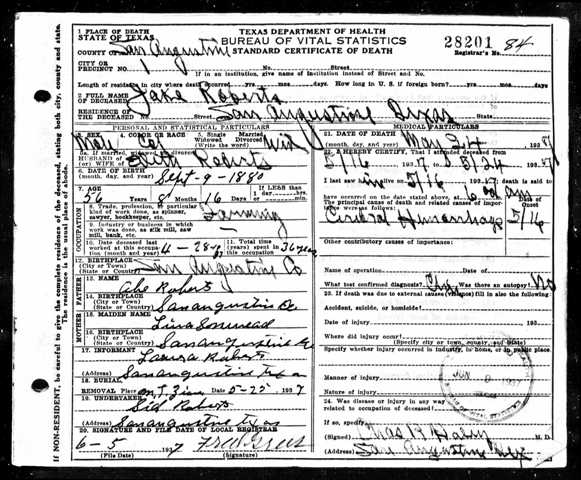 TEXAS DEPARTMENT OF HEALTH
BUREAU OF VITAL STATISTICS
STANDARD CERTIFICATE OF DEATH
28201 84
Registrar's No.
1 PLACE OF DEATH
STATE OF TEXAS
COUNTY OF San Augustine
CITY OR PRECINCT NO. 1 No. Street
If in an institution, give name of institution instead of Street and No.
Length of residence in city where death occurred yrs. mos. days. How long in U. S. if foreign born? yrs. mos. days
2 FULL NAME OF DECEASED Jake Roberts
RESIDENCE OF THE DECEASED No. Street San Augustine Texas State
PERSONAL AND STATISTICAL PARTICULARS
3 SEX Male 4. COLOR OR RACE Col 5. Single Married Widowed Divorced (Write the word)
5a. If married, widowed, or divorced HUSBAND OF (OR) WIFE OF Roberts
6. DATE OF BIRTH (month, day, and year) Sept-9-1880
7. AGE 56 Years 8 Months 16 Days If LESS than 1 day hrs. min.
OCCUPATION
8. Trade, profession, or particular kind of work done, as spinner, sawyer, bookkeeper, etc. Farming
9. Industry or business in which work was done, as silk mill, saw mill, bank, etc. —
10. Date deceased last worked at this occupation (month and year)
11. Total time (years) spent in this occupation 36 years
12. BIRTHPLACE (City or Town) (State or County) San Augustine Co
FATHER
13. NAME Abe Roberts
14. BIRTHPLACE (City or Town) (State or Country) San Augustine Co
MOTHER
15. MAIDEN NAME Lina
16. BIRTHPLACE (City or Town) (State or Country) San Augustine Co
17. INFORMANT Laura Roberts
(Address) San Augustine Texas
18. BURIAL, REMOVAL Place Mt Zion Date 5-25 1937
19. UNDERTAKER Sid Roberts
(Address) San Augustine Texas
20. SIGNATURE AND FILE DATE OF LOCAL REGISTRAR
6-5 1937
(File Date) (Signature)
MEDICAL PARTICULARS
21. DATE OF DEATH (month, day, and year) May 24 1937
22. I HEREBY CERTIFY, That I attended deceased from
5/16 1937 to 5/24 1937
I last saw him alive on 5/16 1937 death is said to
have occurred on the date stated above, at 6 am
The principal cause of death and related causes of importance were as follows: Date of Onset
Hemorrhage 5/16
Other contributory causes of importance:
Name of operation Date of
What test confirmed diagnosis? Was there an autopsy? No
23. If death was due to external causes (violence) fill in also the following:
Accident, suicide, or homicide?
Date of injury 193
Where did injury occur?
(Specify city or town, county, and State)
Specify whether injury occurred in industry, in home, or in public place.
Manner of injury
Nature of injury
24. Was disease or injury in any way related to occupation of deceased?
If so, specify
(Signed) M. D.
(Address) San Augustine Tex
IF NON-RESIDENT, be careful to give the complete residence of the deceased, stating both city, county and state.
The residence is the usual place of abode.